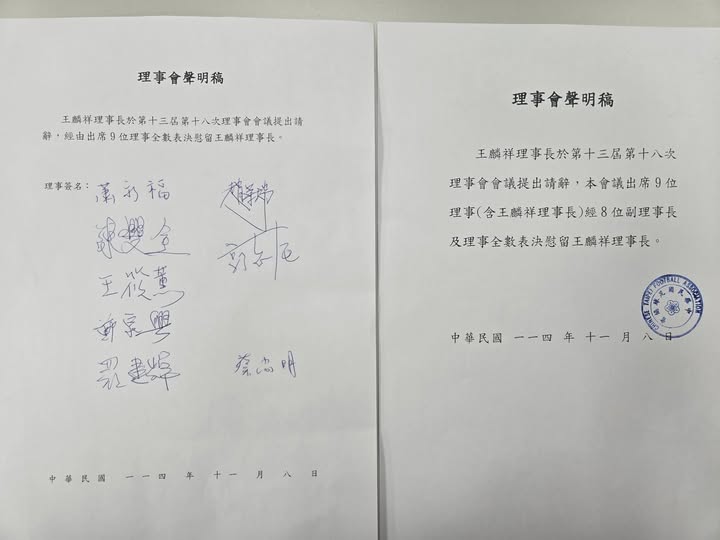 理事會聲明稿
王麟祥理事長於第十三屆第十八次理事會會議提出請
辭，經由出席9位理事全數表決慰留王麟祥理事長。
理事簽名：
王筱薰
蔡尚明
中華民國 一一四 年 十一 月 八 日
理事會聲明稿
王麟祥理事長於第十三屆第十八次
理事會會議提出請辭，本會議出席9位
理事(含王麟祥理事長)經8位副理事長
及理事全數表決慰留王麟祥理事長。
CHINESE TAIPEI FOOTBALL ASSOCIATION
中華民國 一一四 年 十一 月 八 日